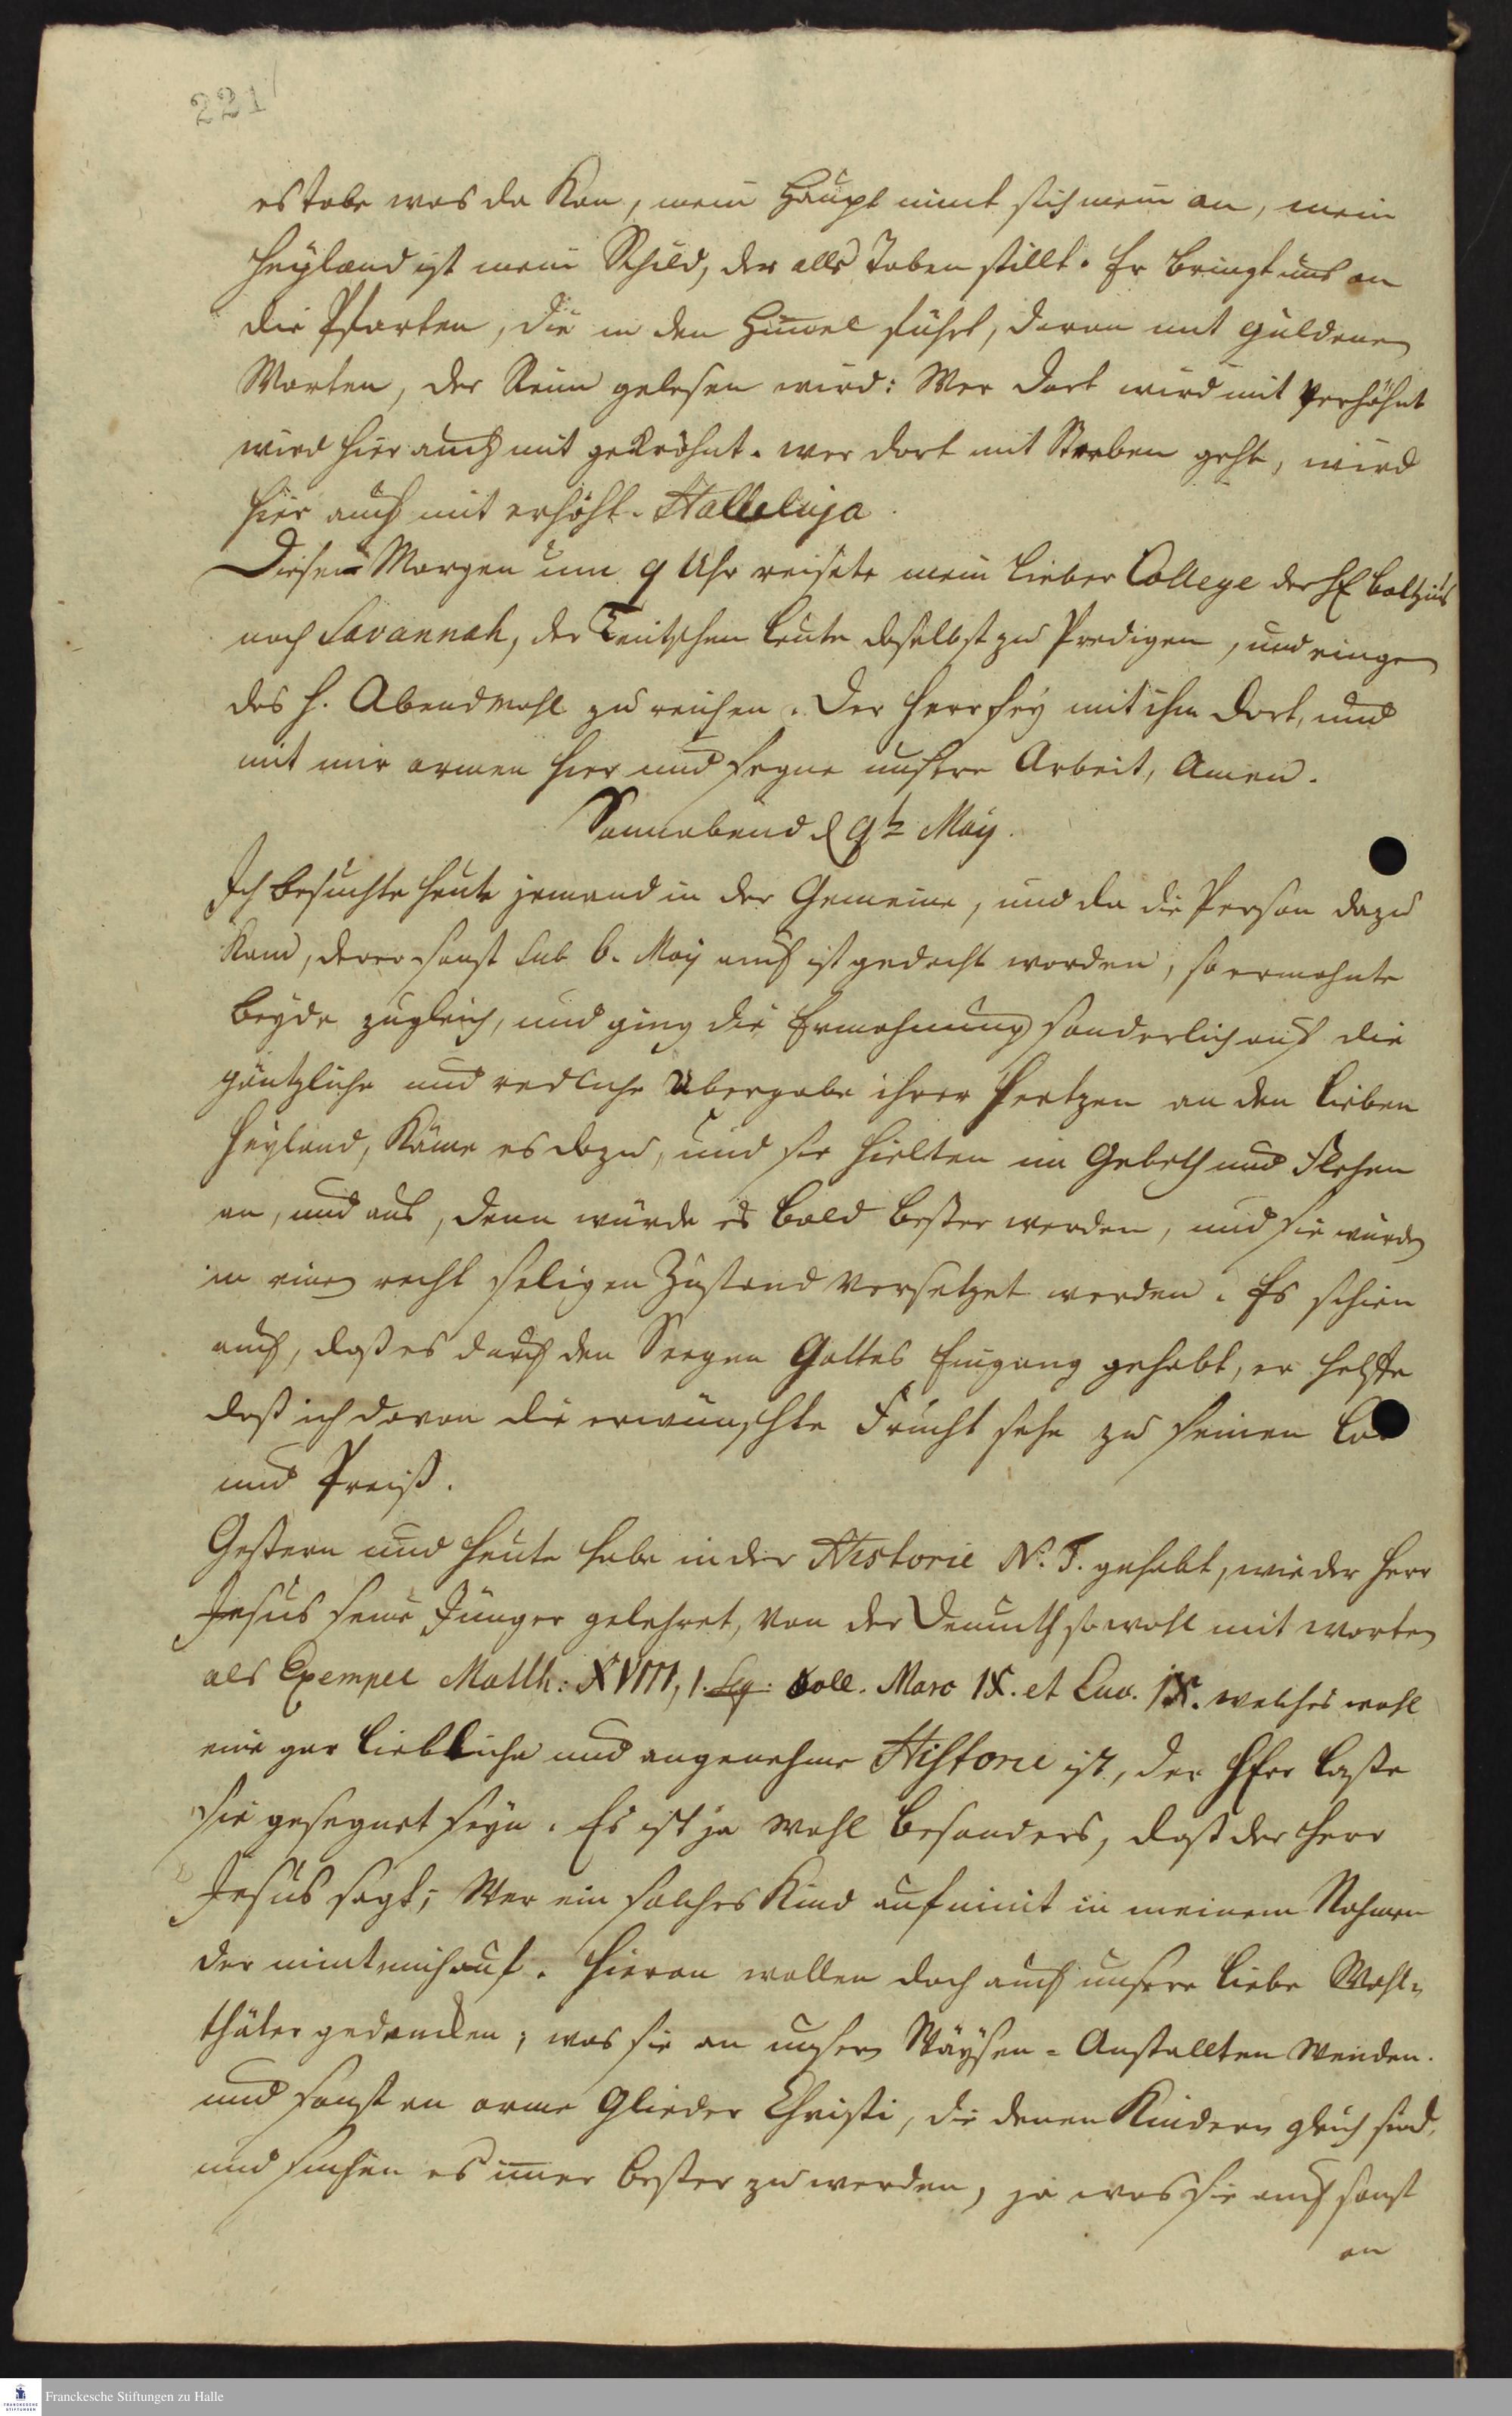 221
es tobe was da kan, mein Haupt nimt sich mein an, mein
Heyland ist mein Schild, der alles Toben stillt. Er bringt uns an
die Pforten, die in den Himel führt, daran mit güldenen
Worten, der Reim gelesen wird: Wer dort wird mit verhöhnt
wird hier auch mit gekröhnt. wer dort mit Sterben geht, wird
hier auch mit erhöht. Halleluja.
Diesen Morgen um 9 Uhr reisete mein lieber College der H Boltzius
nach Savannah, der Teutschen Leute daselbst zu Predigen, und einigen
das H. Abendmahl zu reichen. Der Herr sey mit ihm dort, und
mit mir armen hier und segne unsere Arbeit, Amen.
Sonnabend d 9t May.
Ich besuchte heute jemand in der Gemeine, und da die Person dazu
kam, derer sonst sub 6. May auch ist gedacht worden, so ermahnte
beyde zugleich, und ging die Ermahnung sonderlich auf die
gäntzliche und redliche Übergabe ihrer Hertzen an den lieben
Heyland, käme es dazu, und sie hielten im Gebeth und Flehen
an, und aus, denn würde es bald beßer werden, und sie würden
in einen recht seligen Zustand versetzet werden. Es schien
auch, daß es durch den Seegen Gottes Eingang gehabt, er helffe
daß ich davon die erwünschte Frucht sehe zu seinen Lob
und Preiß.
Gestern und heute habe in der Historie N. T. gehabt, wie der Herr
Jesus seine Jünger gelehret, von der Demuth so wohl mit worten
als Exempel Matth: XVIII, 1. sq. coll. Marc IX. et Luc. IX. welches wohl
eine gar liebliche und angenehme Historie ist, der HErr laße
sie gesegnet seyn. Es ist ja wohl besonders, daß der Herr
Jesus sagt; Wer ein solches Kind aufnimt in meinem Nahmen
der nimt mich auf. Hieran wollen doch auch unsere liebe Wohl-
thäter gedencken; was sie an unsern Wäysen-Anstallten wenden.
und sonst an arme Glieder Christi, die denen Kindern gleich sind,
und suchen es imer beßer zu werden, ja was sie auch sonst
an
Franckesche Stiftungen zu Halle